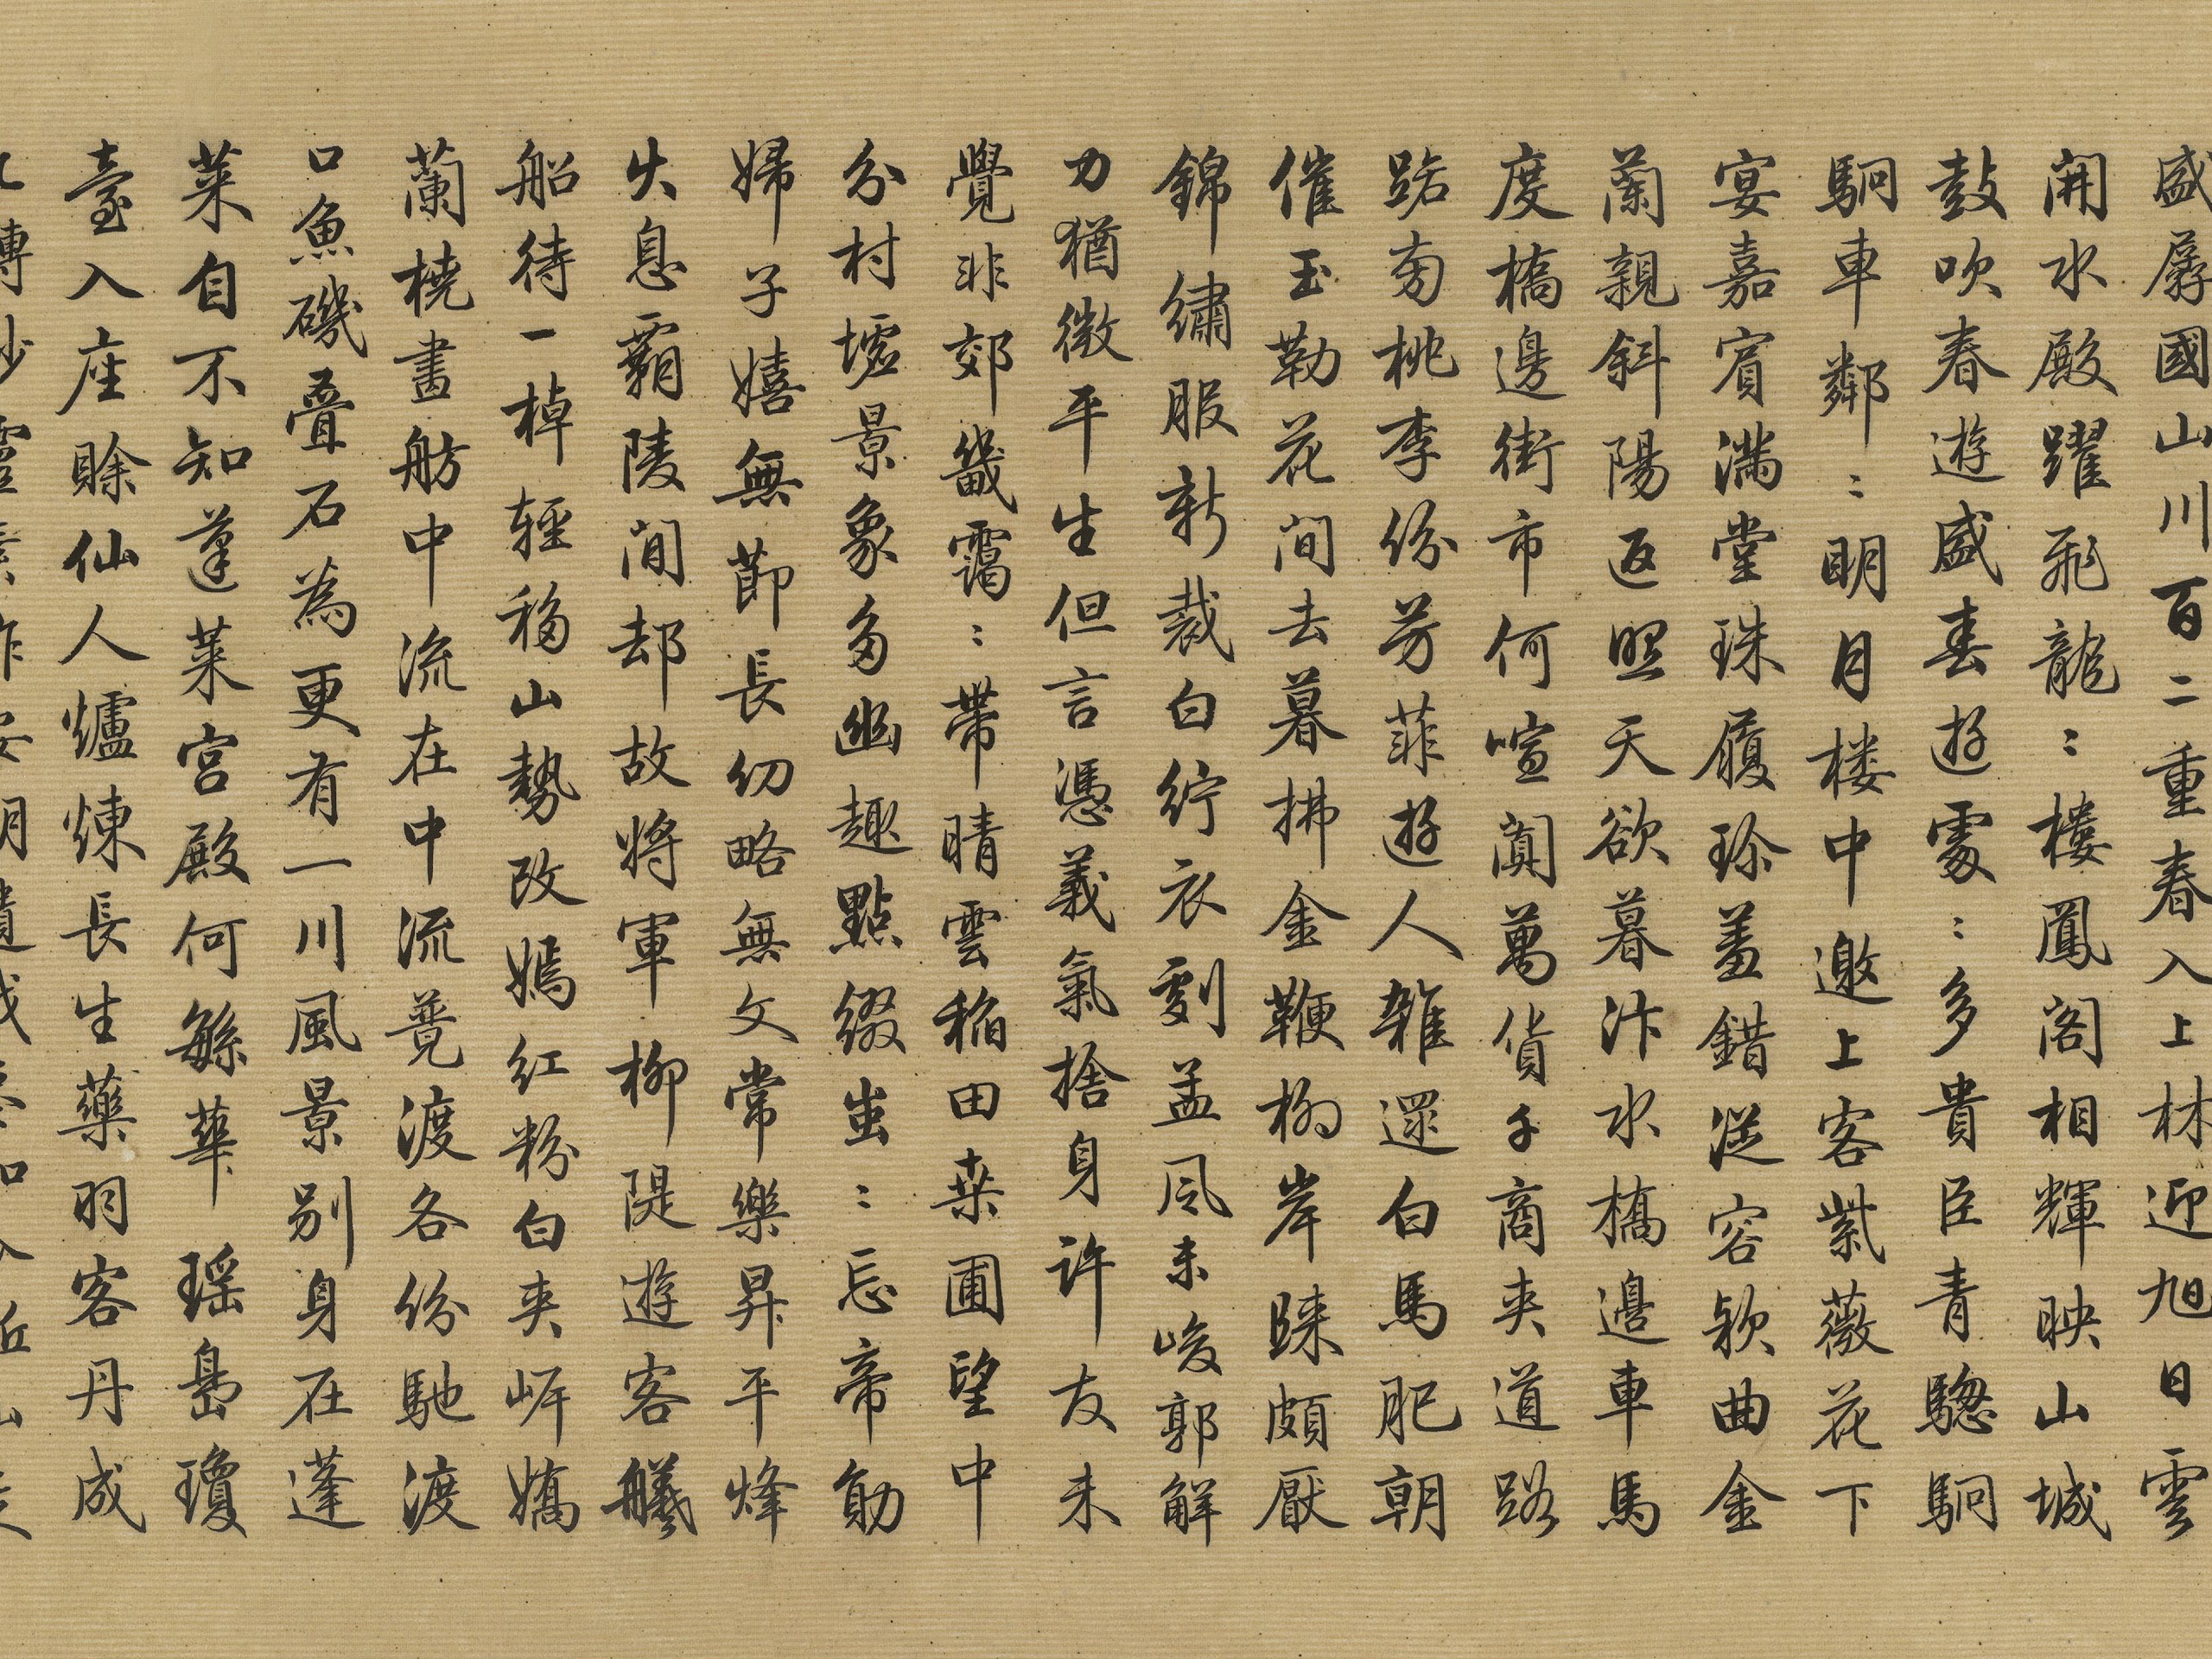 盛孱國山川百二重春入上林迎旭日雲
開水殿躍飛龍〻樓鳳閣相輝映山城
鼓吹春遊盛春遊處〻多貴臣青驄駉
駉車鄰〻明月楼中邀上客紫薇花下
宴嘉賓滿堂珠履珍羞錯從容款曲金
蘭親斜陽返照天欲暮汴水橋邊車馬
度橋邊街市何喧闐萬貨千商夹道路
路旁桃李纷芳菲遊人雜還白馬肥朝
催玉勒花间去暮拂金鞭柳岸歸頗厭
錦繡服新裁白紵衣劇孟风未峻郭解
力猶微平生但言憑義氣捨身許友未
覺非郊畿靄〻帶晴雲稻田桒圃望中
分村墟景象多幽趣點缀蚩〻忘帝勛
婦子嬉無莭長幼略無文常樂昇平烽
火息霸陵閒却故将軍柳隄遊客艤
船待一棹輕移山勢改嫣红粉白夹岸嬌
蘭橈畫舫中流在中流竟渡各纷馳渡
口魚磯叠石為更有一川風景别身在蓬
莱自不知蓬莱宫殿何緐華瑶島瓊
臺入座賒仙人爐煉長生藥羽客丹成